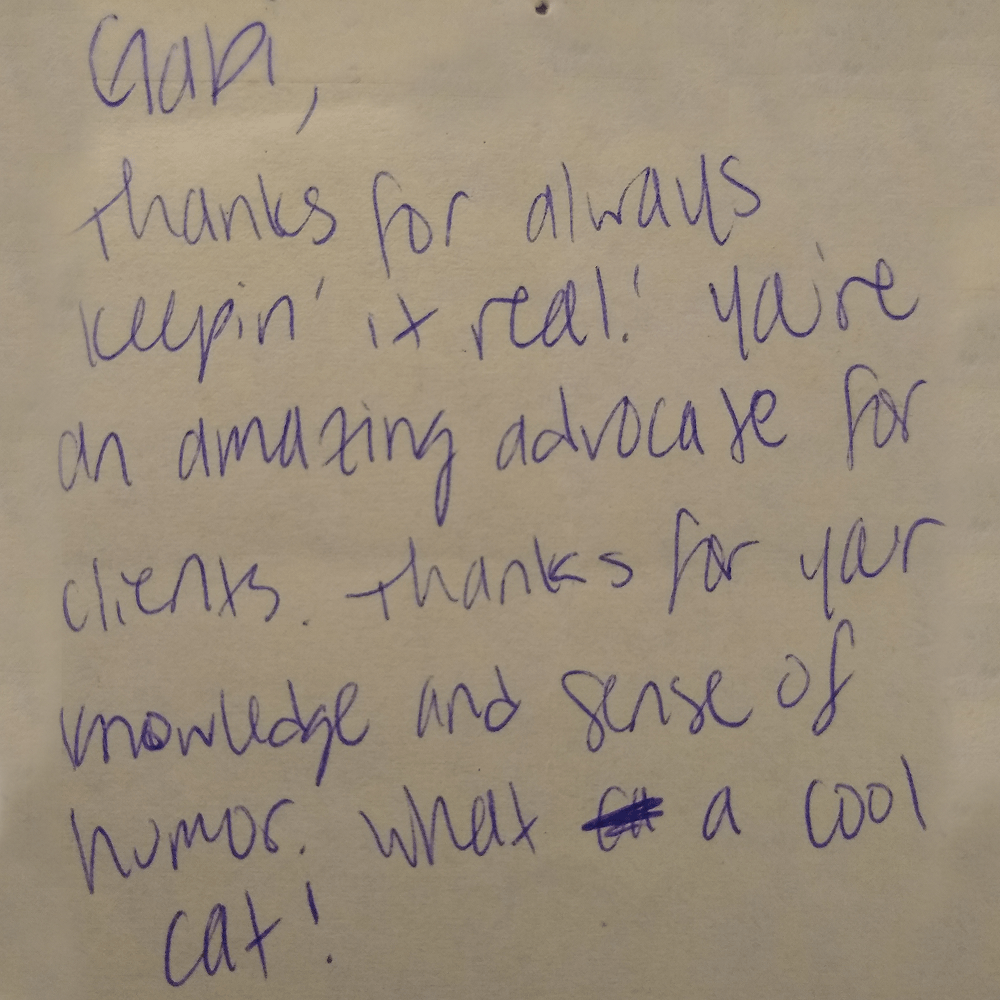 Gabi,
thanks for always
keepin' it real! you're
an amazing advocate for
clients. thanks for your
knowledge and sense of
humor. what a cool
cat!